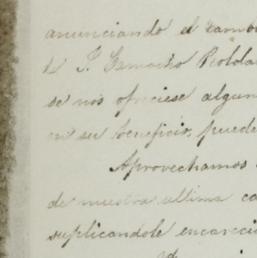 anunciando el cambi
d J. Camacho Roldá
se nos ofreciese algun
en su beneficio, puede
Aprovechamos
de nuestra ultima ca
suplicandole encareci